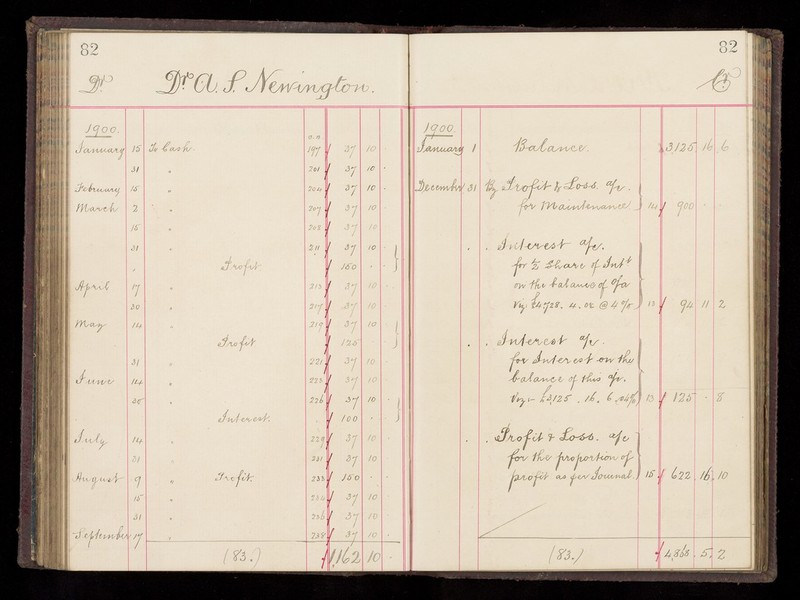 82
Dr. Dr A. S. Newington.
1900.
January 15 To Cash 197 37 10
31 " 201 37 10
February 15 " 204 37 10
March 2 " 207 37 10
15 " 208 37 10
31 " 211 37 10
" Profit 150
April 17 " 213 37 10
30 " 217 37 10
May 14 " 219 37 10
Profit 125
31 " 221 37 10
June 14 " 223 37 10
" 226 37 10
Interest. 100
July 14 " 229 37 10
31 " 231 37 10
August 9 " Profit. 233 150
15 " 234 37 10
31 " 236 37 10
September 17 " 238 37 10
(83.) £1,162 10
82
Cr
1900
January 1 Balance. 3,125 16 6
December 31 By Profit & Loss. a/c.
for Maintenance 14 900
" " Interest a/c.
for ½ Share of Intt
on the balance of a/c
Viz. £4728. 4. @ 4% 13 94 11 2
" " Interest a/c.
for Interest on the
balance of this a/c.
Viz £3,125. 16. 6. @4% 13 125 . 8
" " Profit & Loss. a/c
for the proportion of
profit as per Journal 15 622. 16. 10
(83.) £4,368. 5. 2